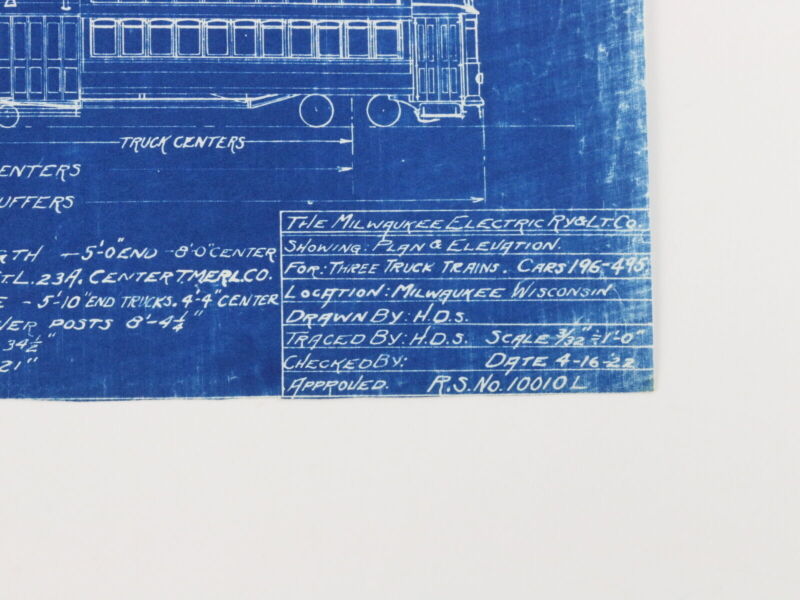 TRUCK CENTERS
ENTERS
UFFERS
RTH - 5'-0" END - 8'-0" CENTER
T L. 23A. CENTER T.M.E.R.L.CO.
E - 5'-10" END TRUCKS. 4'4" CENTER
VER POSTS 8'-4 1/4"
34 1/2"
21"
THE MILWAUKEE ELECTRIC RY & LT. CO.
SHOWING: PLAN & ELEVATION.
FOR: THREE TRUCK TRAINS. CARS 196-495.
LOCATION: MILWAUKEE WISCONSIN
DRAWN BY: H.D.S.
TRACED BY: H.D.S. SCALE 3/32" = 1'-0"
CHECKED BY: DATE 4-16-22
APPROVED. R.S. NO. 10010 L